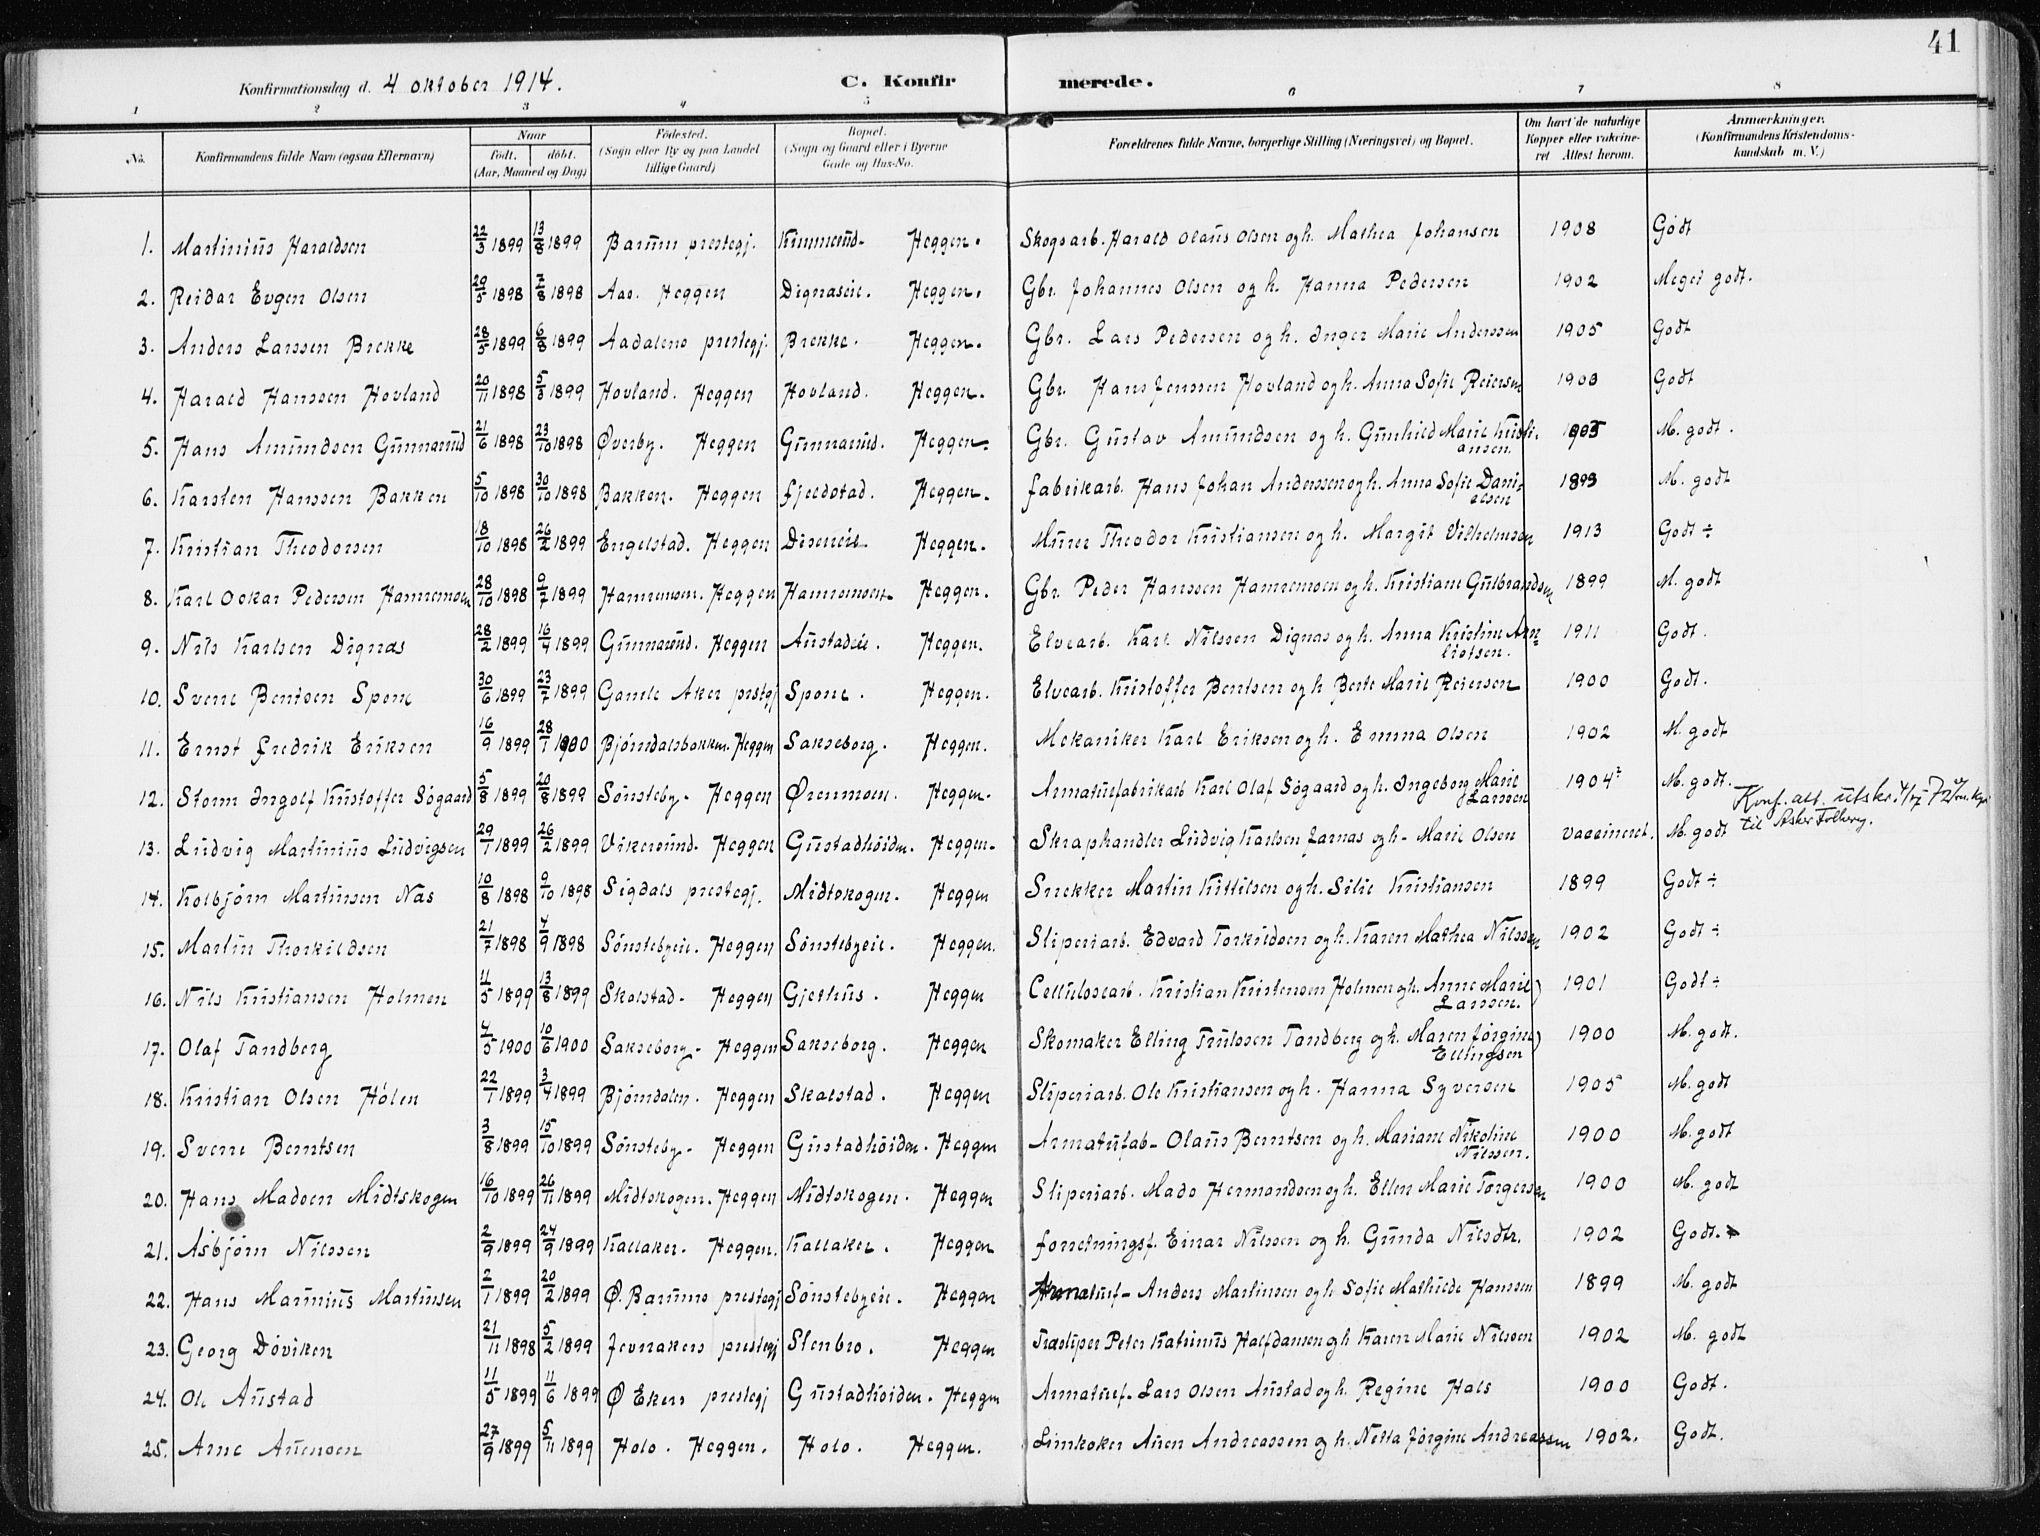 41
Konfirmationsdag d. 4 oktober 1914.
C. Konfirmerede.
1 2 3 4 5 6 7 8
No. Konfirmandens fulde Navn (ogsaa Efternavn) Naar født. døbt. (Aar, Maaned og Dag) Fødested. (Sogn eller By og paa Landet tillige Gaard) Bopæl. (Sogn og Gaard eller i Byerne Gade og Hus-No. Forældrenes fulde Navne, borgerlige Stilling (Næringsvei) og Bopæl. Om havt de naturlige Kopper eller vakcineret Attest herom. Anmærkninger. (Konfirmandens Kristendomskundskab m. V.)
1. Martinius Haraldsen 22/3 1899 13/8 1899 Bærums prestegj. Heggen. Skogsarb. Harald Olaus Olsen og h. Mathea Johansen 1908 Godt
2. Reidar Evgen Olsen 29/5 1898 7/8 1898 Aas. Heggen Dignaseie. Heggen. Gbr. Johannes Olsen og h. Hanna Pedersen 1902 Meget godt.
3. Anders Larssen Brekke 28/5 1899 6/8 1899 Aadalens prestegj. Brekke. Heggen. Gbr. Lars Pedersen og h. Inger Marie Anderssen 1905 Godt
4. Harald Hanssen Hovland 20/11 1898 5/3 1899 Hovland. Heggen Hovland. Heggen. Gbr. Hans Jenssen Hovland og h. Anna Sofie Reiersen 1900 Godt
5. Hans Amundsen Gunnerud 21/6 1898 23/10 1898 Øverby. Heggen Gunnerud. Heggen. Gbr. Gustav Amundsen og h. Gunhild Marie Kristiansen. M. godt.
6. Karsten Hanssen Bakken 5/10 1898 30/10 1898 Bakken. Heggen Fjeldstad. Heggen. Fabrikarb. Hans Johan Anderssen og h. Anna Sofie Danielsen 1899 M. godt
7. Kristian Theodorsen 18/10 1898 26/2 1899 Engelstad. Heggen Diseneie Heggen. Murer Theodor Kristiansen og h. Margit Vilhelmsen 1913 Godt ÷
8. Karl Oskar Pedersen Hannemoen 28/10 1898 9/7 1899 Hannemoen. Heggen Hannemoen. Heggen. Gbr. Peder Hanssen Hannemoen og h. Kristiane Gulbrandsen 1899 M. godt
9. Nils Karlsen Dignæs 28/2 1899 16/4 1899 Gunnerud. Heggen Austadeie. Heggen. Elvearb. Karl Nilssen Dignæs og h. Anna Kristine Arnliotsen. 1911 Godt.
10. Sverre Bentsen Spone 30/6 1899 23/7 1899 Gamle Aker prstgj Spone. Heggen. Elvearb. Kristoffer Bentsen og h Berte Marie Reiersen 1900 Godt.
11. Ernst Fredrik Eriksen 16/9 1899 28/1 1900 Bjørndalsbakken. Heggen Sakseborg. Heggen. Mekaniker Karl Eriksen og h. Emma Olsen 1902 M. godt
12. Storm Ingolf Kristoffer Søgaard 5/8 1899 20/8 1899 Sønsteby. Heggen Ørenmoen. Heggen. Armaturfabrikarb Karl Olaf Søgaard og h. Ingeborg Marie Larssen 1904 M. godt. Konf. att. utskr. til
13. Ludvig Martinius Ludvigsen 29/1 1899 26/2 1899 Vikersund. Heggen Gustadhøiden. Heggen. Skraphandler Ludvig Karlsen Jarnæs og h. Marie Olsen vaccineret. M. godt
14. Kolbjørn Martinsen Næs 10/8 1898 9/10 1898 Sigdals prestegj. Midtskogen. Heggen Snekker Martin Kittilsen og h. Silie Kristiansen 1899 Godt ÷
15. Martin Thorkildsen 21/7 1898 4/9 1898 Sønstebyeie. Heggen Sønstebyeie. Heggen. Sliperiarb. Edvard Torkildsen og h. Karen Mathea Nilssen 1902 Godt ÷
16. Nils Kristiansen Holmen 11/5 1899 13/8 1899 Skalstad. Heggen Gjethus. Heggen Cellulosearb. Kristian Kristensen Holmen og h. Anne Marie Larssen. 1901 Godt ÷
17. Olaf Tandberg 4/5 1900 10/6 1900 Sakseborg. Heggen Sakseborg. Heggen Skomaker Elling Trulssen Tandberg og h. Maren Jørgine Ellingsen 1900 M. godt.
18. Kristian Olsen Hølen 22/1 1899 3/4 1899 Bjørndalen. Heggen Skalstad. Heggen Sliperiarb. Ole Kristiansen og h. Hanna Syversen 1905 M. godt
19. Sverre Berntsen 3/8 1899 15/10 1899 Sønsteby. Heggen Gustadhøiden. Heggen Armaturfab. Olaus Berntsen og h. Mariane Nikoline Nilssen. 1900 M. godt
20. Hans Madsen Midtskogen 16/10 1899 26/11 1899 Midtskogen. Heggen Midtskogen. Heggen Sliperiarb. Mads Hermandsen og h. Ellen Marie Torgersen 1900 M. godt
21. Asbjørn Nilssen 2/9 1899 24/9 1899 Kallaker. Heggen. Kallaker. Heggen Forretningsf. Einar Nilssen og h. Gunda Nilsdtr. 1902 Godt.
22. Hans Marinius Martinsen 2/1 1899 20/2 1899 Ø. Bærums prestegj Sønstebyeie. Heggen Armaturf. Anders Martinsen og h Sofie Mathilde Hanssen 1899 M. godt
23. Georg Døviken 21/11 1898 5/2 1899 Jevnakers prestegj Stenbro. Heggen Træsliper Peter Katrinus Halfdansen og h. Karen Marie Nilssen 1902 M. godt
24. Ole Austad 11/5 1899 11/6 1899 Ø Ekers prestegj Gustadhøiden. Heggen Armaturf. Lars Olsen Austad og h. Regine Hals 1900 Godt.
25. Arne Auensen 27/9 1899 5/11 1899 Hols. Heggen. Hols. Heggen. Limkoker Auen Andreassen og h. Netta Jørgine Andreassen 1902. Godt.